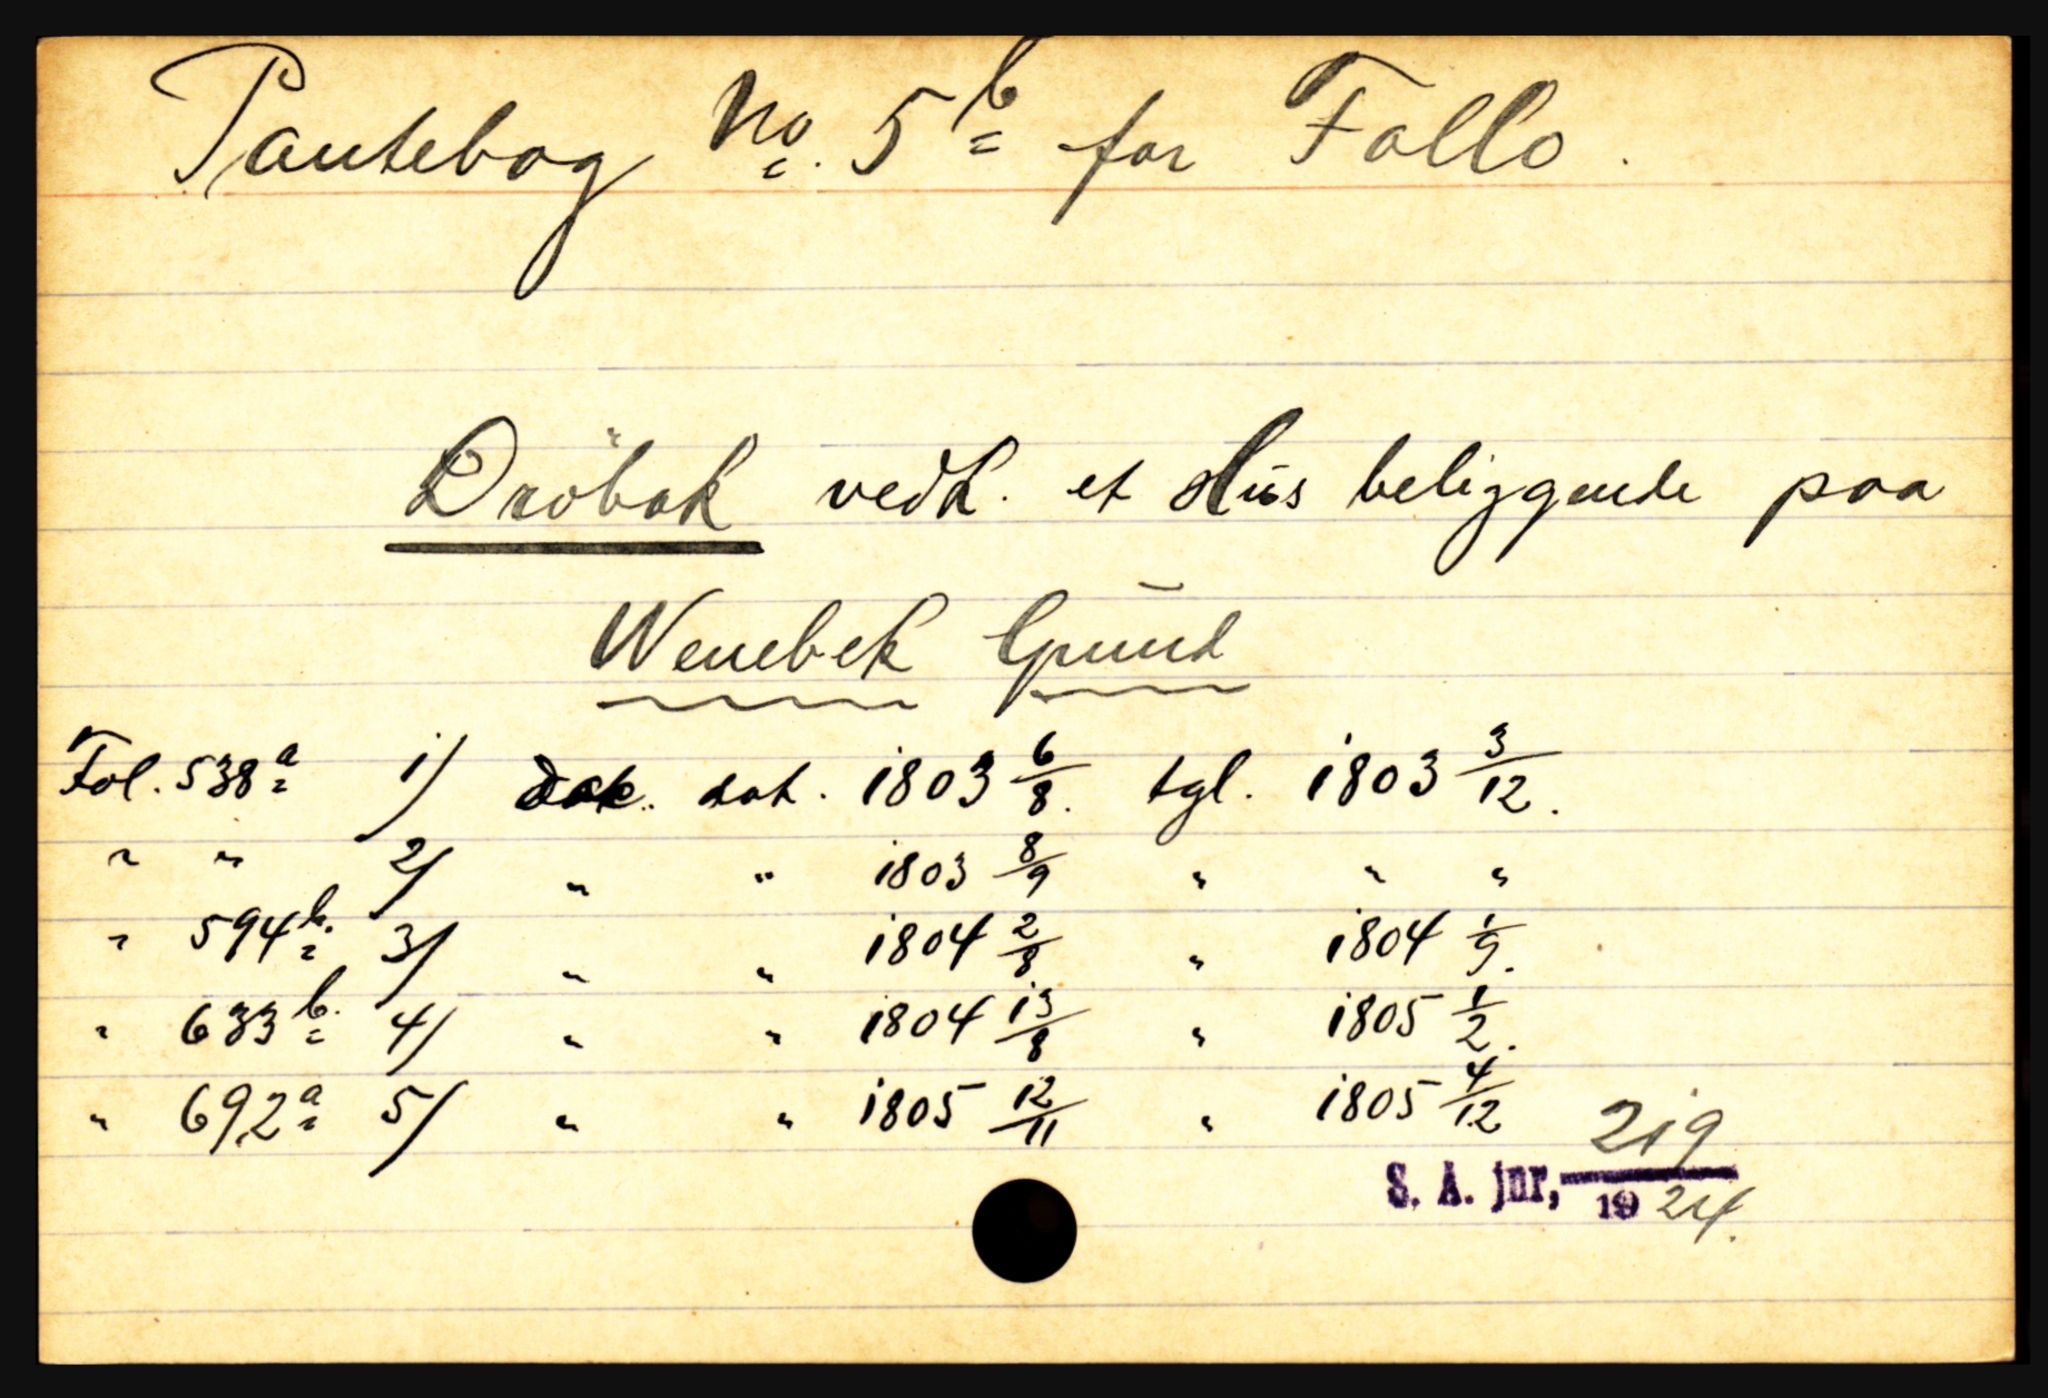 Pantebog No. 5 b for Follo.
Dröbak vedk. et Hus beliggende paa
Wenebek Grund
Fol. 538 a 1/ Dok. dat. 1803 6/8. tgl. 1803 3/12.
" " 2/ " " 1803 8/9 " " "
" 594 b. 3/ " " 1804 2/8 " 1804 1/9.
" 633 b. 4/ " " 1804 13/8 " 1805 1/2.
" 692 a 5/ " " 1805 12/11 " 1805 4/12
S. A. jnr, 219/1924.